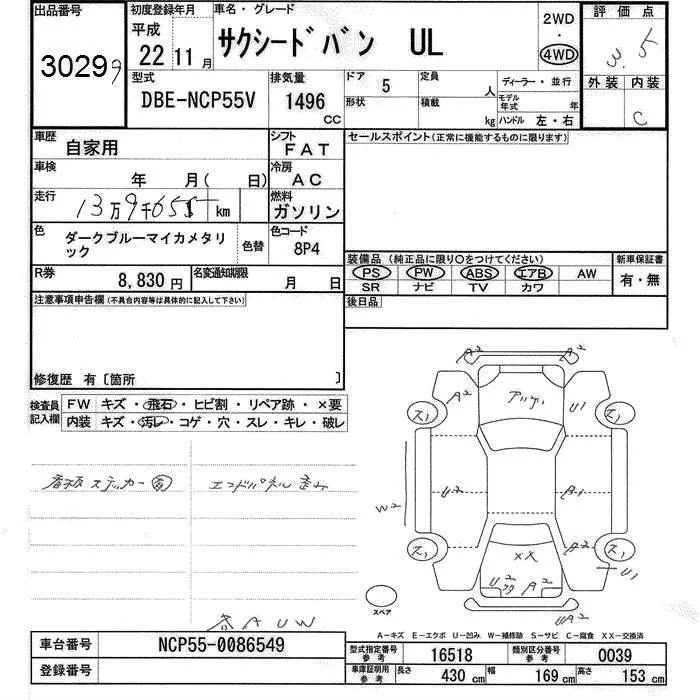 出品番号 初度登録年月 車名・グレード 評価点
30299 平成 22 11月 サクシードバン UL 2WD ・ 4WD 3.5
型式 排気量 ドア 5 定員 人 ディーラー・並行 外装 内装
DBE-NCP55V 1496 cc 形状 積載 kg モデル年式 年 ハンドル 左・右 C
車歴 自家用 シフト FAT セールスポイント(正常に機能するものに限ります)
車検 年 月( 日) 冷房 AC
走行 13万9千655 km 燃料 ガソリン
色 ダークブルーマイカメタリック 色替 色コード 8P4
装備品(純正品に限り○をつけてください) 新車保証書
PS PW ABS エアB AW 有・無
SR ナビ TV カワ
R券 8,830円 名変通知期限 月 日
後日品
注意事項申告欄(不具合内容等は具体的に記入して下さい)
修復歴 有〔箇所 〕
検査員記入欄 FW キズ・飛石・ヒビ割・リペア跡・×要
内装 キズ・汚レ・コゲ・穴・スレ・キレ・破レ
A2 A2
A2 U1
ス1 ス1
W2 U2 A1
ス1 ス1
XX A2 U1
U2 A2
UA2
ステッカー 有 エンドパネル
AUW
スペア
A-キズ E-エクボ U-凹み W-補修跡 S-サビ C-腐食 XX-交換済
車台番号 NCP55-0086549 型式指定番号 参考 16518 類別区分番号 参考 0039
登録番号 車庫証明用 参考 長さ 430 cm 幅 169 cm 高さ 153 cm